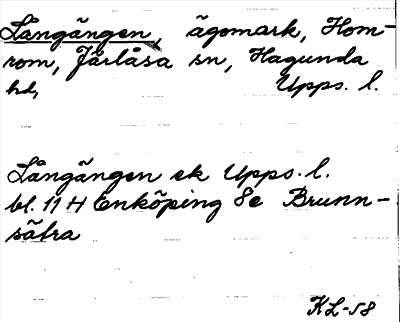 Långängen, ägomark, Hom-
rom, Järlåsa sn, Hagunda
hd, Upps. l.
Långängen ek Upps. l.
bl. 11 H Enköping 8e Brunn-
sätra
KL-58